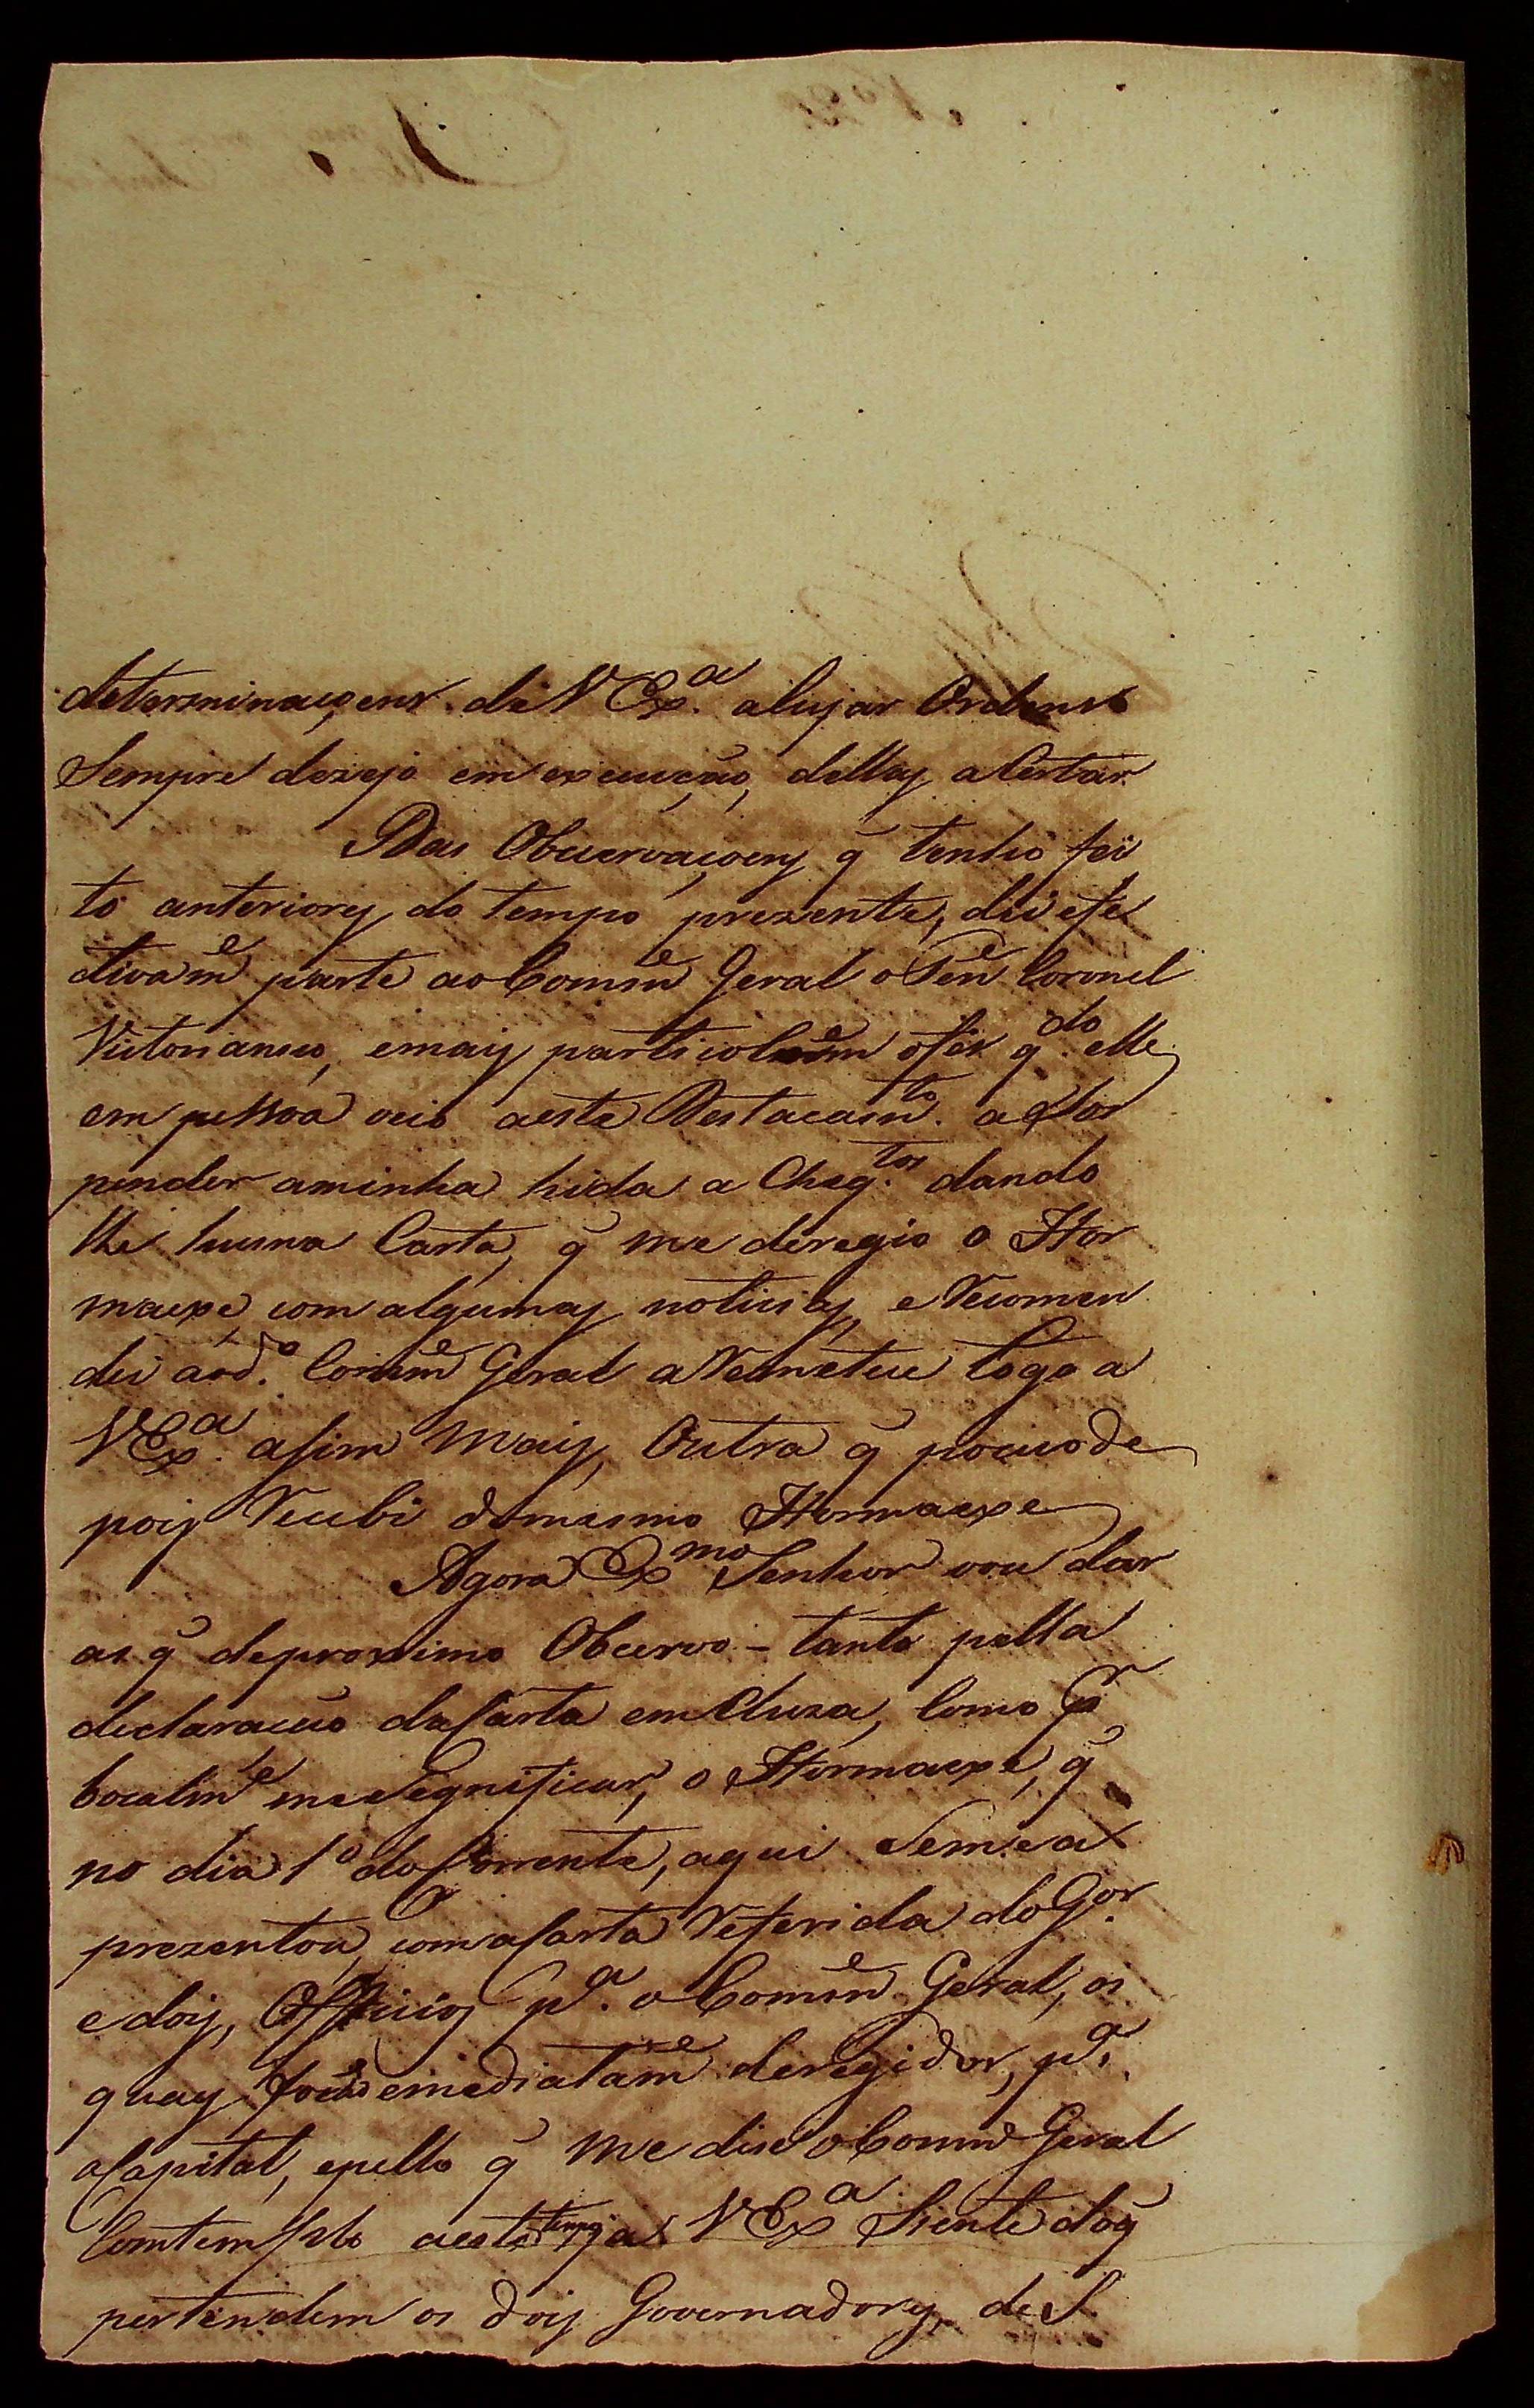 determinaçoens de V Ex.ª alujar Ordens
Sempre dezejo em execução, dellas aCertar
Das Obcervaçoens q̃ tenho fei
to anteriores do tempo prezente, dei efe
tivam.e parte ao Comm.e Geral o Ten.e Coronel
Victoriano, emais particolarm.e o fis q.do elle
em pessoa veio aeste Destacam.to a
pender aminha hida a Chiq.tos dando
lhe huma Carta, q̃ me deregio o Hor
maexe, com algumas noticias, e Recomen
dei aod.º Comm.e Geral aRemetece logo a
V Ex.ª asim Mais, Outra q̃ poucode
pois Recebi domesmo Hormaexe
Agora Ex.mo Senhor vou dar
as q̃ deproximo Obcervo - tanto pella
declaração daCarta emCluza, Como p.r
bocalm.e meSegnificar, o Hormaexe, q̃
no dia 1º doCorrente, aqui Semea
prezentou, comaCarta Referida doG.or
edois, Officios p.ª o Comm.e Geral, os
quays forão emediatam.e deregidos, p.ª
aCapital, epello q̃ me dise oComm.e Geral
Comtemplo aeste tempo ja V Ex.ª Siente doq̃
pertendem os dois Governadores, de S.